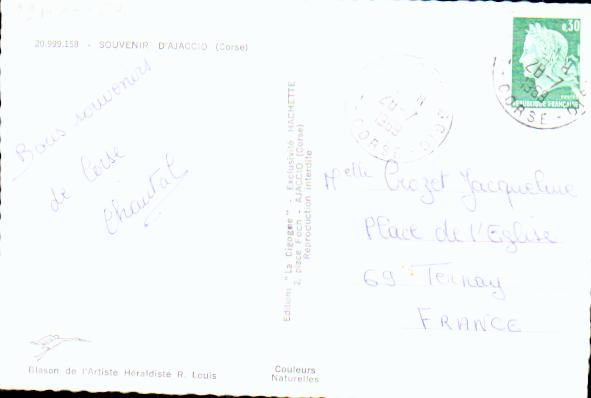 20.999.158 - SOUVENIR D'AJACCIO (Corse)
Bons souvenirs
de Corse
Chantal
Editions "La Cigogne" - Exclusivité HACHETTE
2, place Foch - AJACCIO (Corse)
Reproduction interdite
0,30
REPUBLIQUE FRANÇAISE
28-7
1969
CORSE
28-7
1969
CORSE
Melle Crozet Jacqueline
Place de l'Eglise
69 Ternay
FRANCE
Blason de l'Artiste Héraldiste R. Louis
Couleurs
Naturelles